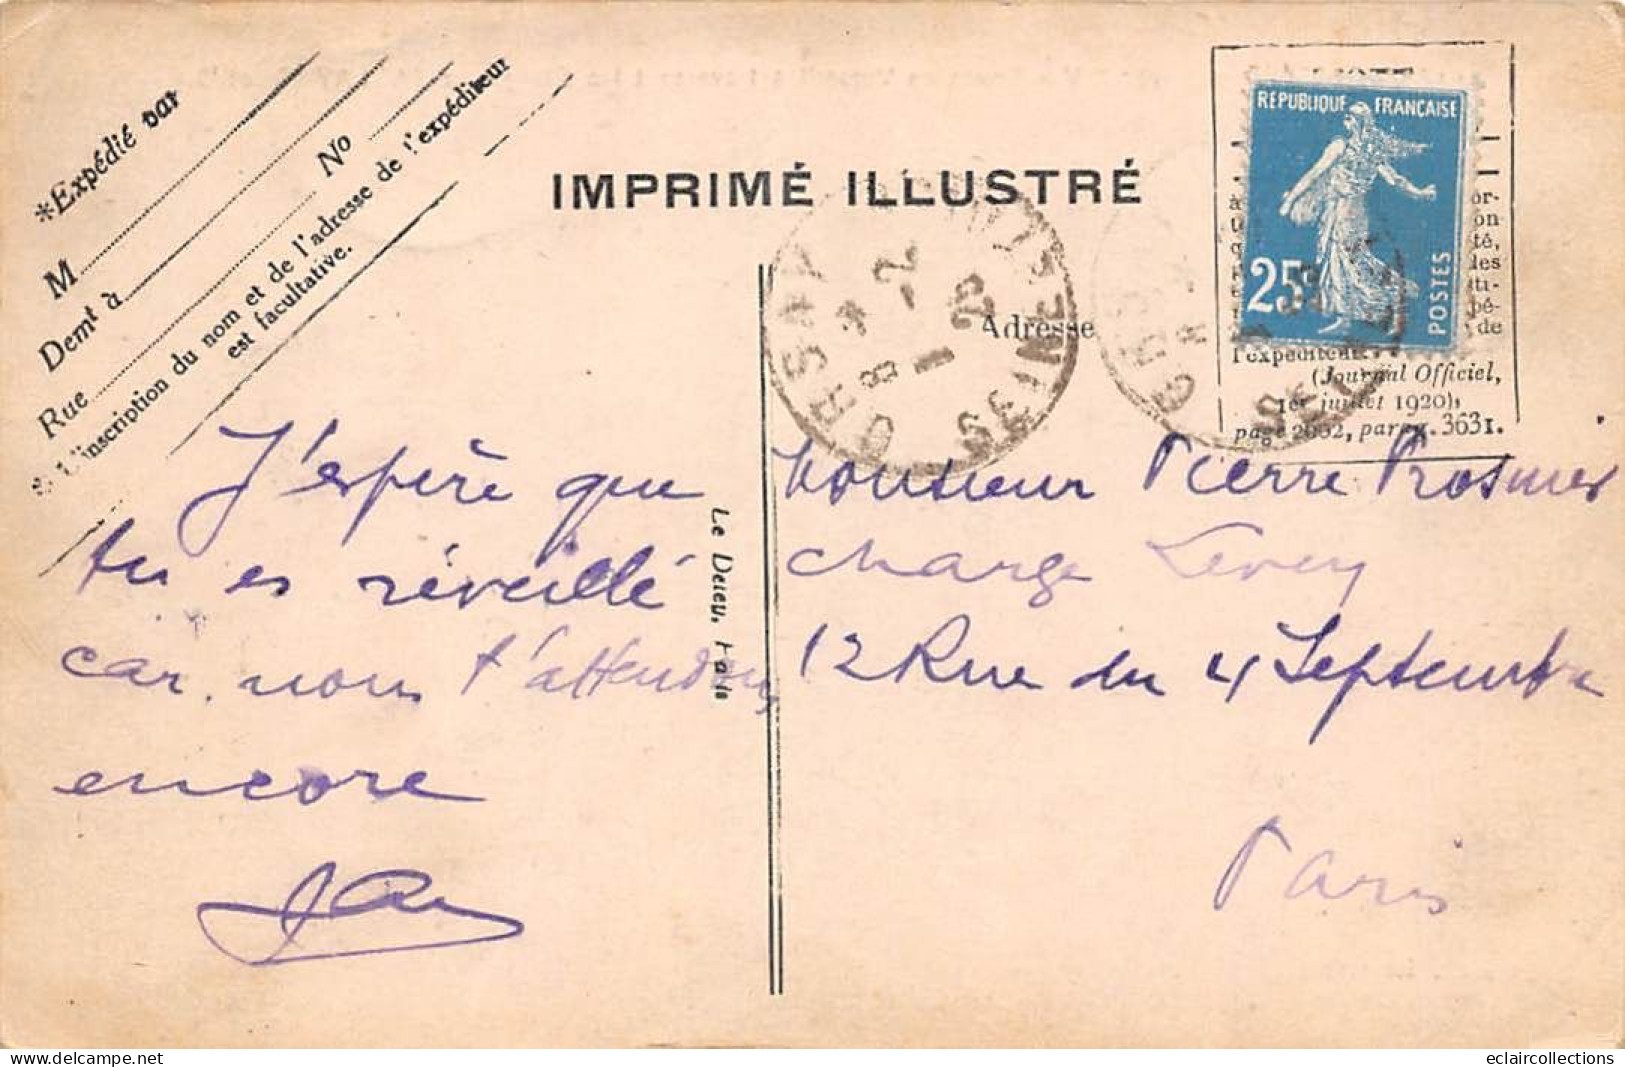 *Expédié par
M
Demt à
Rue
No
* L'inscription du nom et de l'adresse de l'expéditeur
est facultative.
IMPRIMÉ ILLUSTRÉ
RÉPUBLIQUE FRANÇAISE
25c
POSTES
ORSAY
SEINE
Adresse
l'expéditeur.
(Journal Officiel,
1er juillet 1920),
page 2002, parag. 3631.
Le Deley, Paris
J'espère que
tu es réveillé
car nous t'attendons
encore
Monsieur Pierre
Charge Levey
12 Rue du 4 Septembre
Paris
eclaircollections